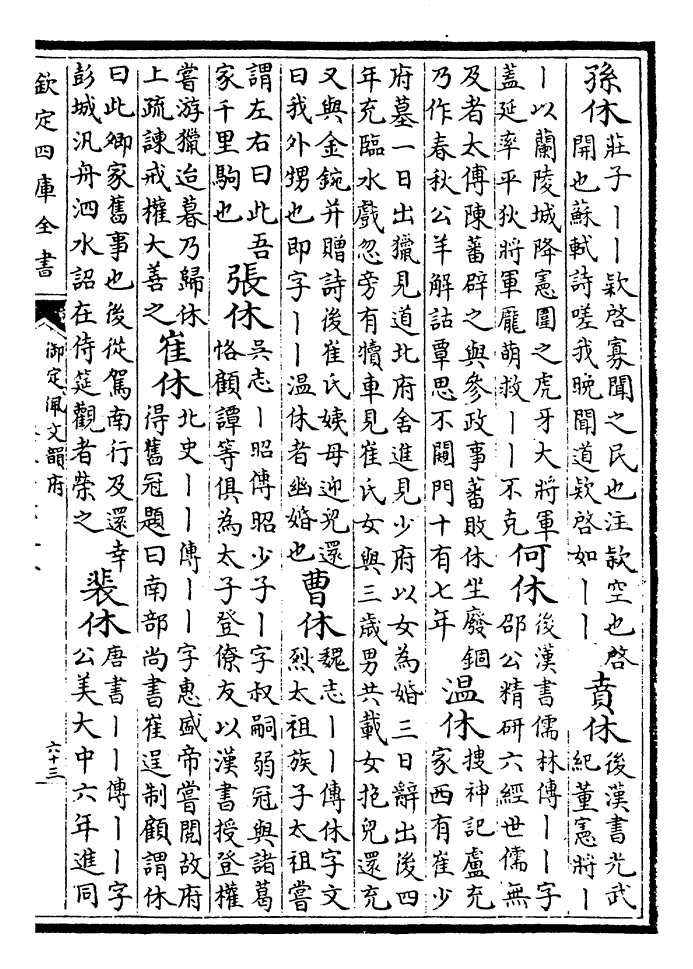 孫休
莊子丨丨欵啓寡聞之民也注欵空也啓
開也蘇軾詩嗟我晚聞道欵啓如丨丨
賁休
後漢書光武
紀董憲將丨
丨以蘭陵城降憲圍之虎牙大將軍
蓋延率平狄將軍龐萌救丨丨不克
何休
後漢書儒林傳丨丨字
邵公精研六經世儒無
及者太傅陳蕃辟之與參政事蕃敗休坐廢錮
乃作春秋公羊解詁覃思不闚門十有七年
溫休
搜神記盧充
家西有崔少
府墓一日出獵見道北府舍進見少府以女為婚三日辭出後四
年充臨水戲忽旁有犢車見崔氏女與三歲男共載女抱兒還充
又與金鋺并贈詩後崔氏姨母迎兒還
曰我外甥也即字丨丨溫休者幽婚也
曹休
魏志丨丨傳休字文
烈太祖族子太祖嘗
謂左右曰此吾
家千里駒也
張休
吳志丨昭傳昭少子丨字叔嗣弱冠與諸葛
恪顧譚等俱為太子登僚友以漢書授登權
嘗游獵迨暮乃歸休
上疏諫戒權大善之
崔休
北史丨丨傳丨丨字惠盛帝嘗閱故府
得舊冠題曰南部尚書崔逞制顧謂休
曰此卿家舊事也後從駕南行及還幸
彭城汎舟泗水詔在侍筵觀者榮之
裴休
唐書丨丨傳丨丨字
公美大中六年進同
欽定四庫全書
御定佩文韻府
六十三